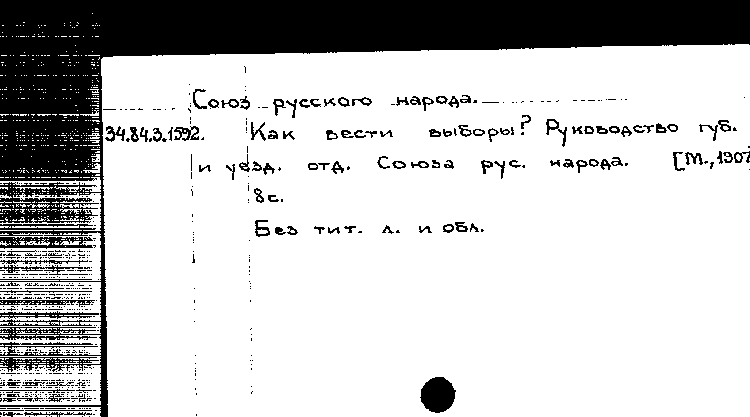 Союз русского народа.
34.84.3.1592. Как вести выборы? Руководство губ.
и уезд. отд. Союза рус. народа. [М., 1907]
8с.
Без тит. л. и обл.